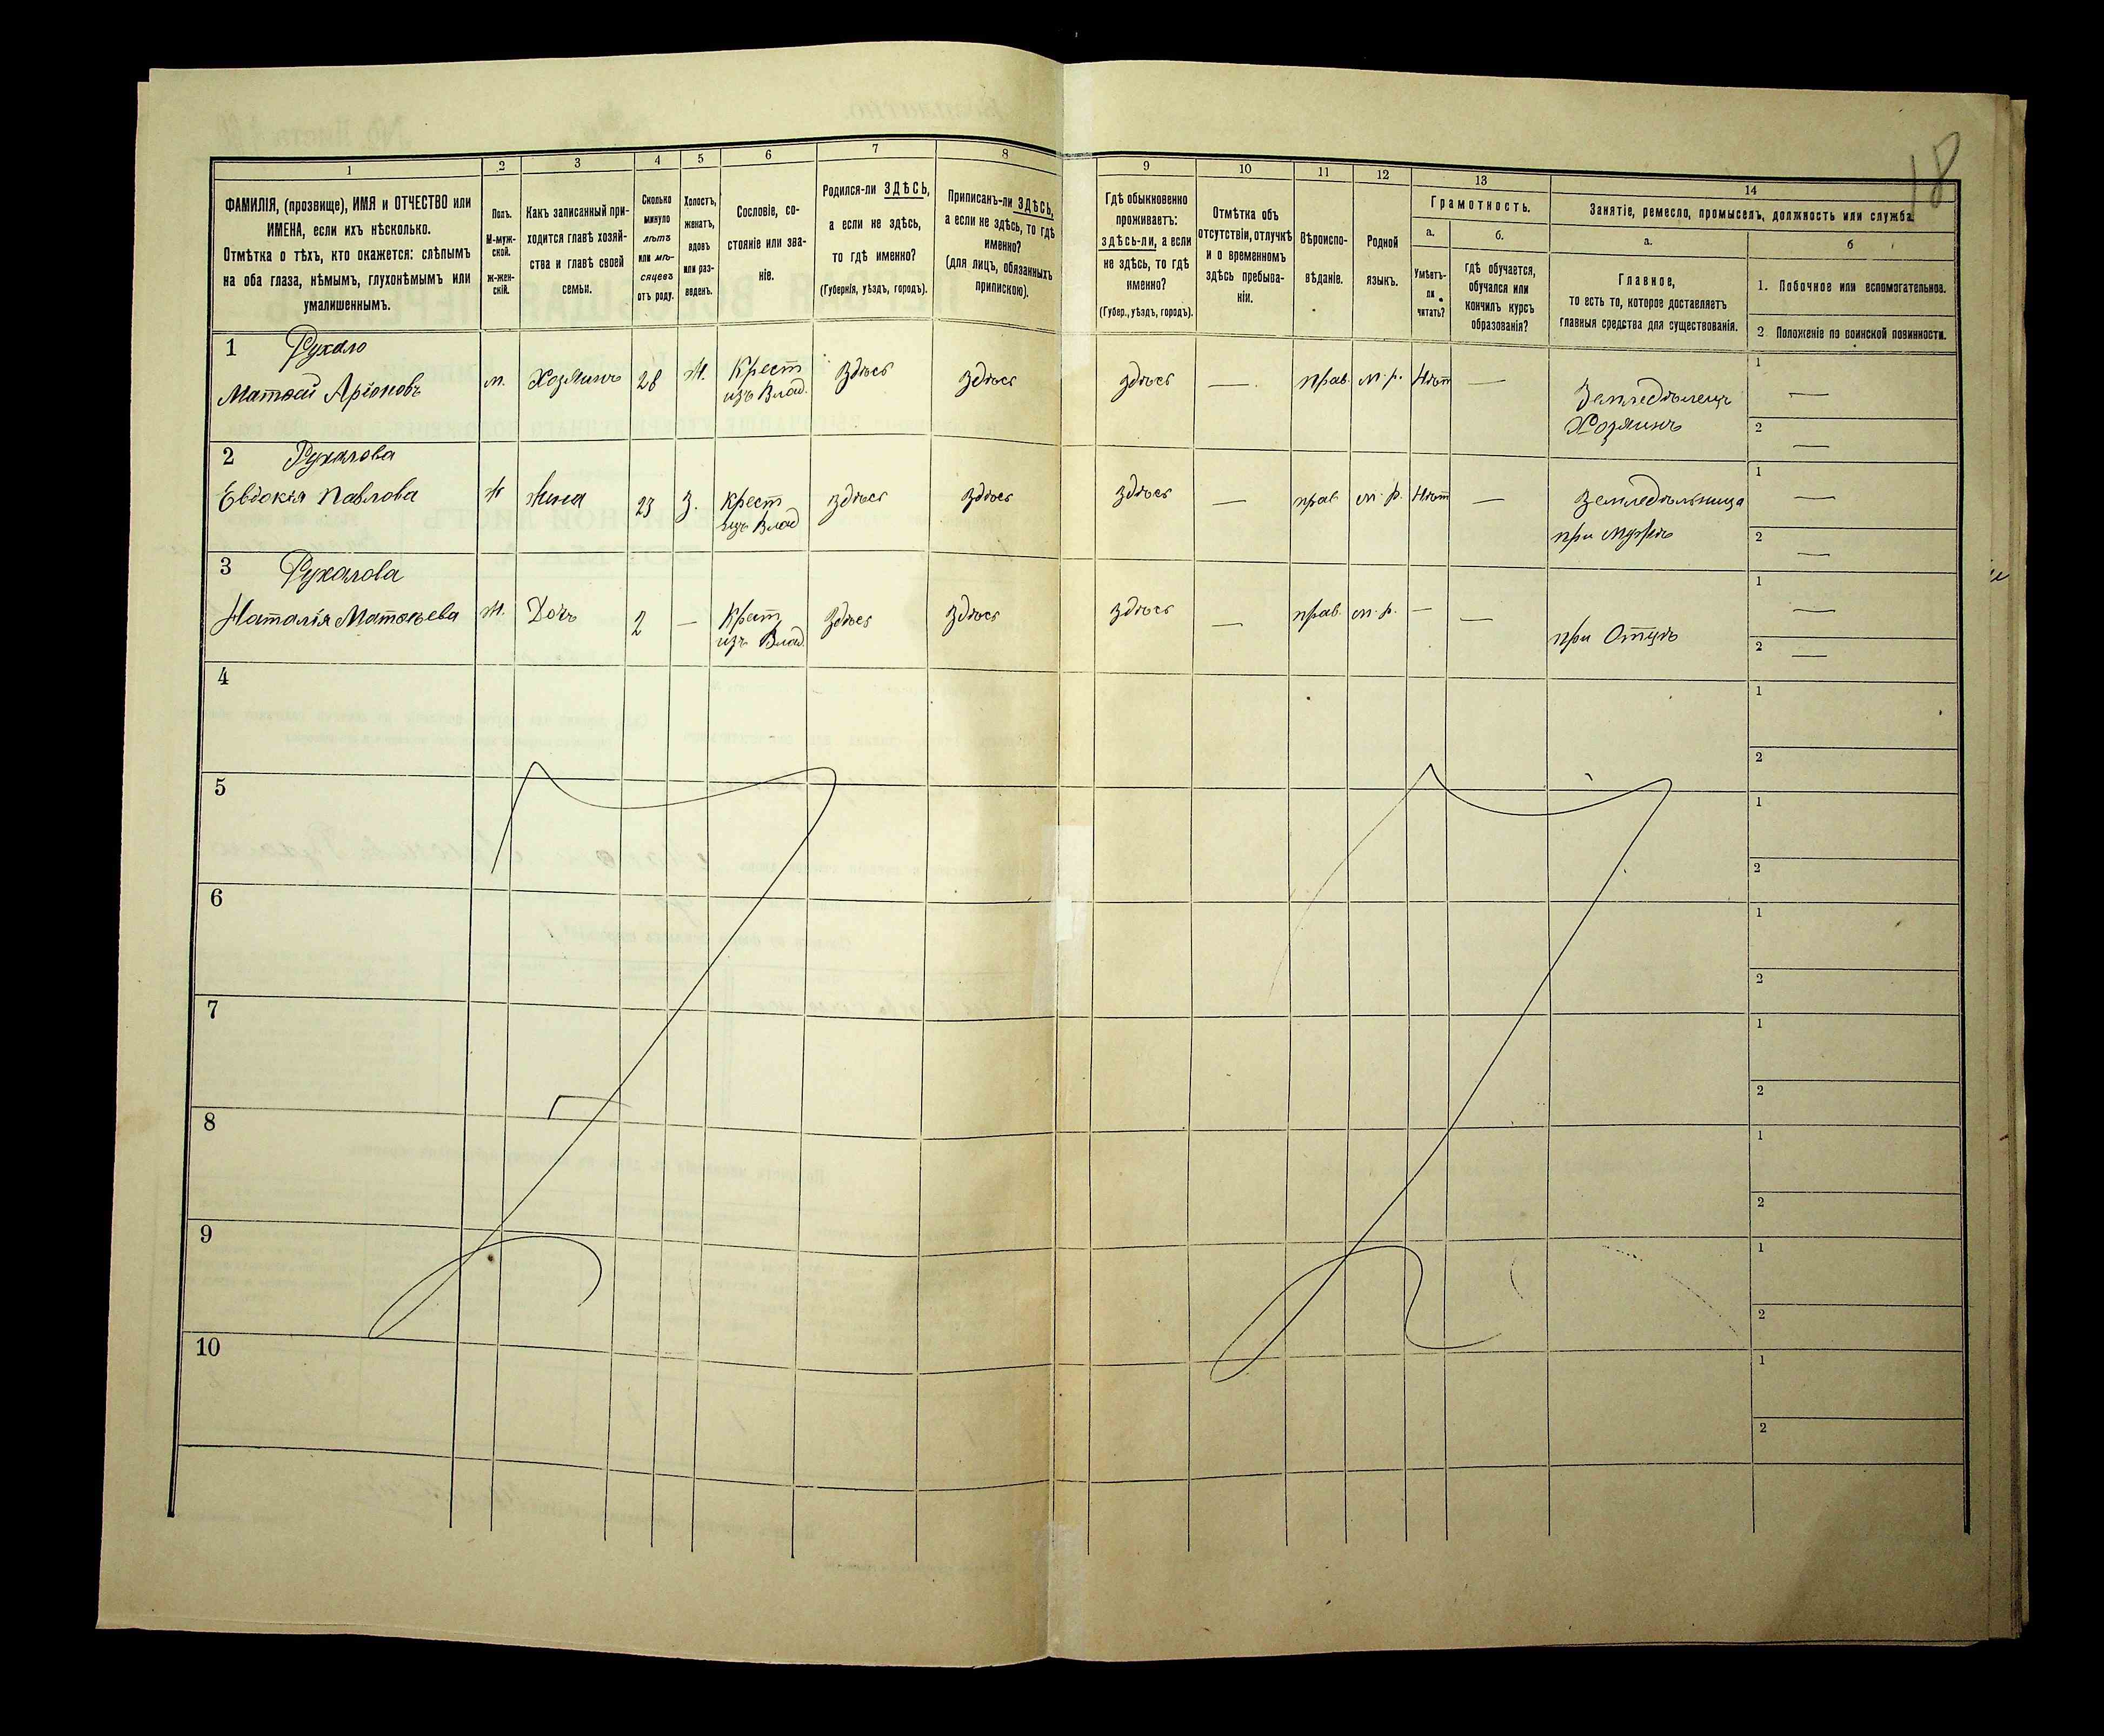 18
1
2
3
4
5
6
7
8
9
10
11
12
13
14
ФАМИЛІЯ, (прозвище), ИМЯ и ОТЧЕСТВО или
ИМЕНА, если ихъ нѣсколько.
Отмѣтка о тѣхъ, кто окажется: слѣпымъ
на оба глаза, нѣмымъ, глухонѣмымъ или
умалишеннымъ.
Полъ.
М-муж-
ской.
ж-жен-
скій.
Какъ записанный при-
ходится главѣ хозяй-
ства и главѣ своей
семьи.
Сколько
минуло
лѣтъ
или мѣ-
сяцевъ
отъ роду.
Холостъ,
женатъ,
вдовъ
или раз-
веденъ.
Сословіе, со-
стояніе или зва-
ніе.
Родился-ли ЗДѢСЬ,
а если не здѣсь,
то гдѣ именно?
(Губернія, уѣздъ, городъ).
Приписанъ-ли ЗДѢСЬ,
а если не здѣсь, то гдѣ
именно?
(для лицъ, обязанныхъ
припискою).
Гдѣ обыкновенно
проживаетъ:
здѣсь-ли, а если
не здѣсь, то гдѣ
именно?
(Губер., уѣздъ, городъ).
Отмѣтка объ
отсутствіи, отлучкѣ
и о временномъ
здѣсь пребыва-
ніи.
Вѣроиспо-
вѣданіе.
Родной
языкъ.
Грамотность.
а.
Умѣетъ-
ли
читать?
б.
гдѣ обучается,
обучался или
кончилъ курсъ
образованія?
Занятіе, ремесло, промыселъ, должность или служба.
а.
Главное,
то есть то, которое доставляетъ
главныя средства для существованія.
б
1. Побочное или вспомогательное.
2. Положеніе по воинской повинности.
1 Рухало
Матѳій Аріоновъ
м.
Хозяинъ
28
Ж.
Крест
изъ Влад.
Здѣсь
здѣсь
здѣсь
—
прав.
м.р.
Нѣт
—
Земледѣлецъ
Хозяинъ
1 —
2 —
2 Рухалова
Евдокія Павлова
ж
жена
23
З.
Крест
изъ Влад
здѣсь
здѣсь
здѣсь
—
прав
м.р.
Нѣт
—
Земледѣльница
при мужѣ
1 —
2 —
3 Рухалова
Наталія Матѳѣева
ж.
Дочь
2
—
Крест
изъ Влад.
здѣсь
здѣсь
здѣсь
—
прав.
м.р.
—
—
при Отцѣ
1 —
2 —
4
1
2
5
1
2
6
1
2
7
1
2
8
1
2
9
1
2
10
1
2